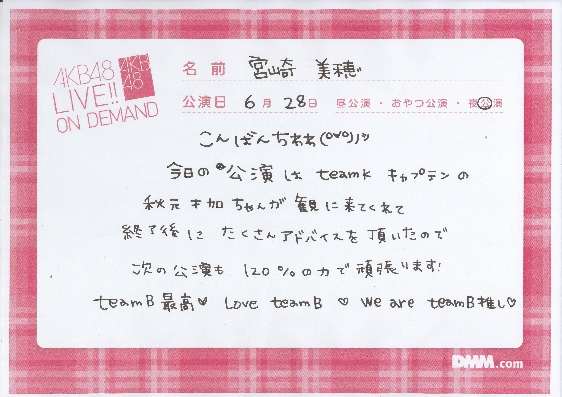 AKB48
LIVE!!
ON DEMAND
AKB
48
名前 宮崎 美穂
公演日 6月 28日 昼公演・おやつ公演・夜公演
こんばんちわわ(°∀°)ﾉｼ
今日の公演は teamK キャプテンの
秋元才加ちゃんが 観に来てくれて
終了後に たくさんアドバイスを 頂いたので
次の公演も 120%の力で頑張ります!
teamB 最高♥ Love teamB ♡ We are teamB推し♡
DMM.com